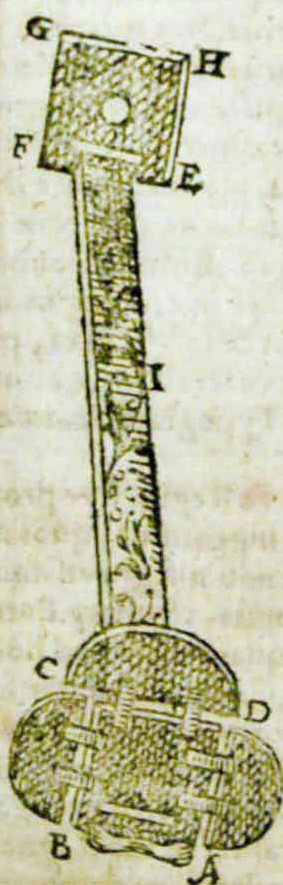 G H
F E
I
C D
B A